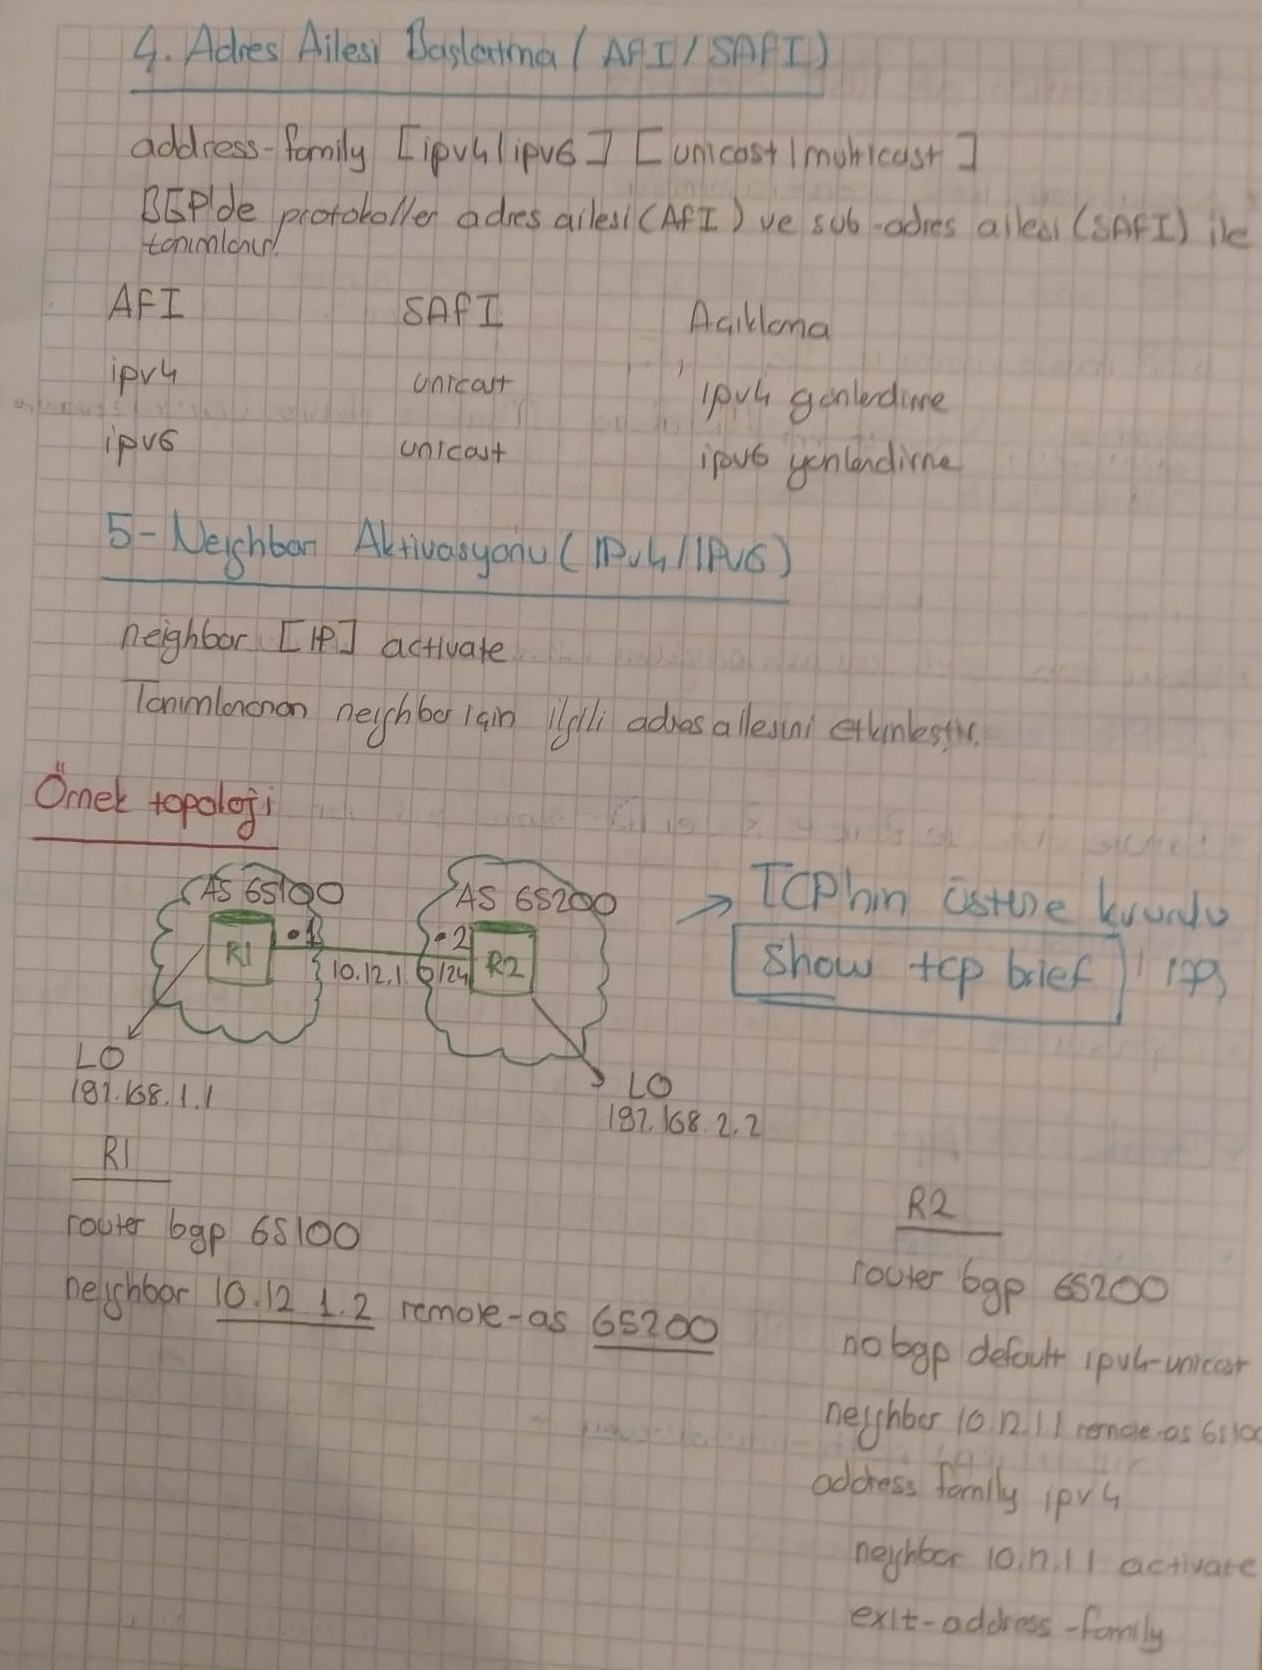 4. Adres Ailesi Başlatma (AFI/SAFI)
address-family [ipv4|ipv6] [unicast|multicast]
BGP'de protokoller adres ailesi (AFI) ve sub-adres ailesi (SAFI) ile
tanımlanır.
AFI SAFI Açıklama
ipv4 unicast ipv4 yönlendirme
ipv6 unicast ipv6 yönlendirme
5- Neighbor Aktivasyonu (IPv4/IPv6)
neighbor [IP] activate
Tanımlanan neighbor için ilgili adres ailesini etkinleştir.
Örnek topoloji
AS 65100 AS 65200
R1 .1 .2 R2
10.12.1.0/24
→ TCP'nin üstüne kurulu
show tcp brief
LO
192.168.1.1
LO
192.168.2.2
R1
router bgp 65100
neighbor 10.12.1.2 remote-as 65200
R2
router bgp 65200
no bgp default ipv4-unicast
neighbor 10.12.1.1 remote-as 65100
address family ipv4
neighbor 10.12.1.1 activate
exit-address-family